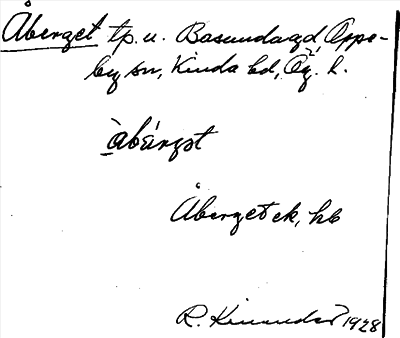 Åberget tp. u. Basundagd, Oppe-
by sn, Kinda hd, Ög. l.
Åberget ek, hb
R. Kinander 1928